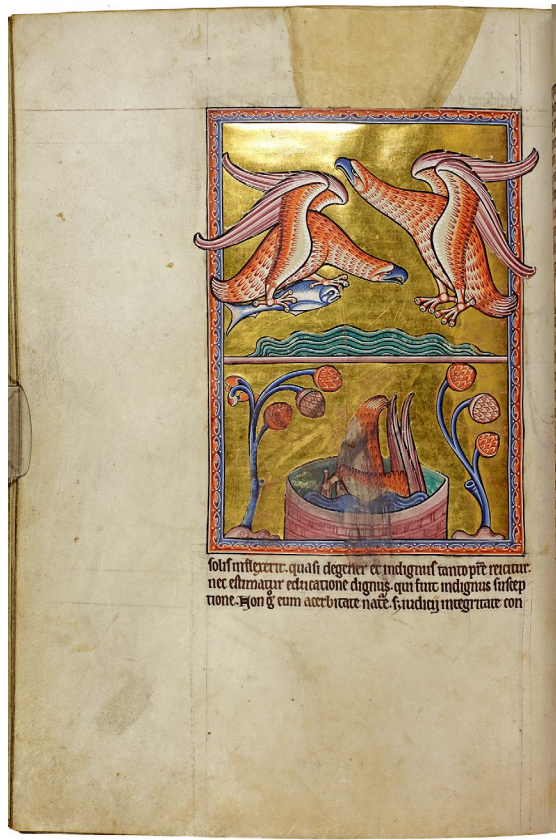 solis inflexerit. quasi degener et indignus tanto pr̄e reicitur.
nec estimatur educatione dignus. qui fuit indignus suscep
tione. Non gͦ eum acerbitate nat̾e. s; iudicij integritate con